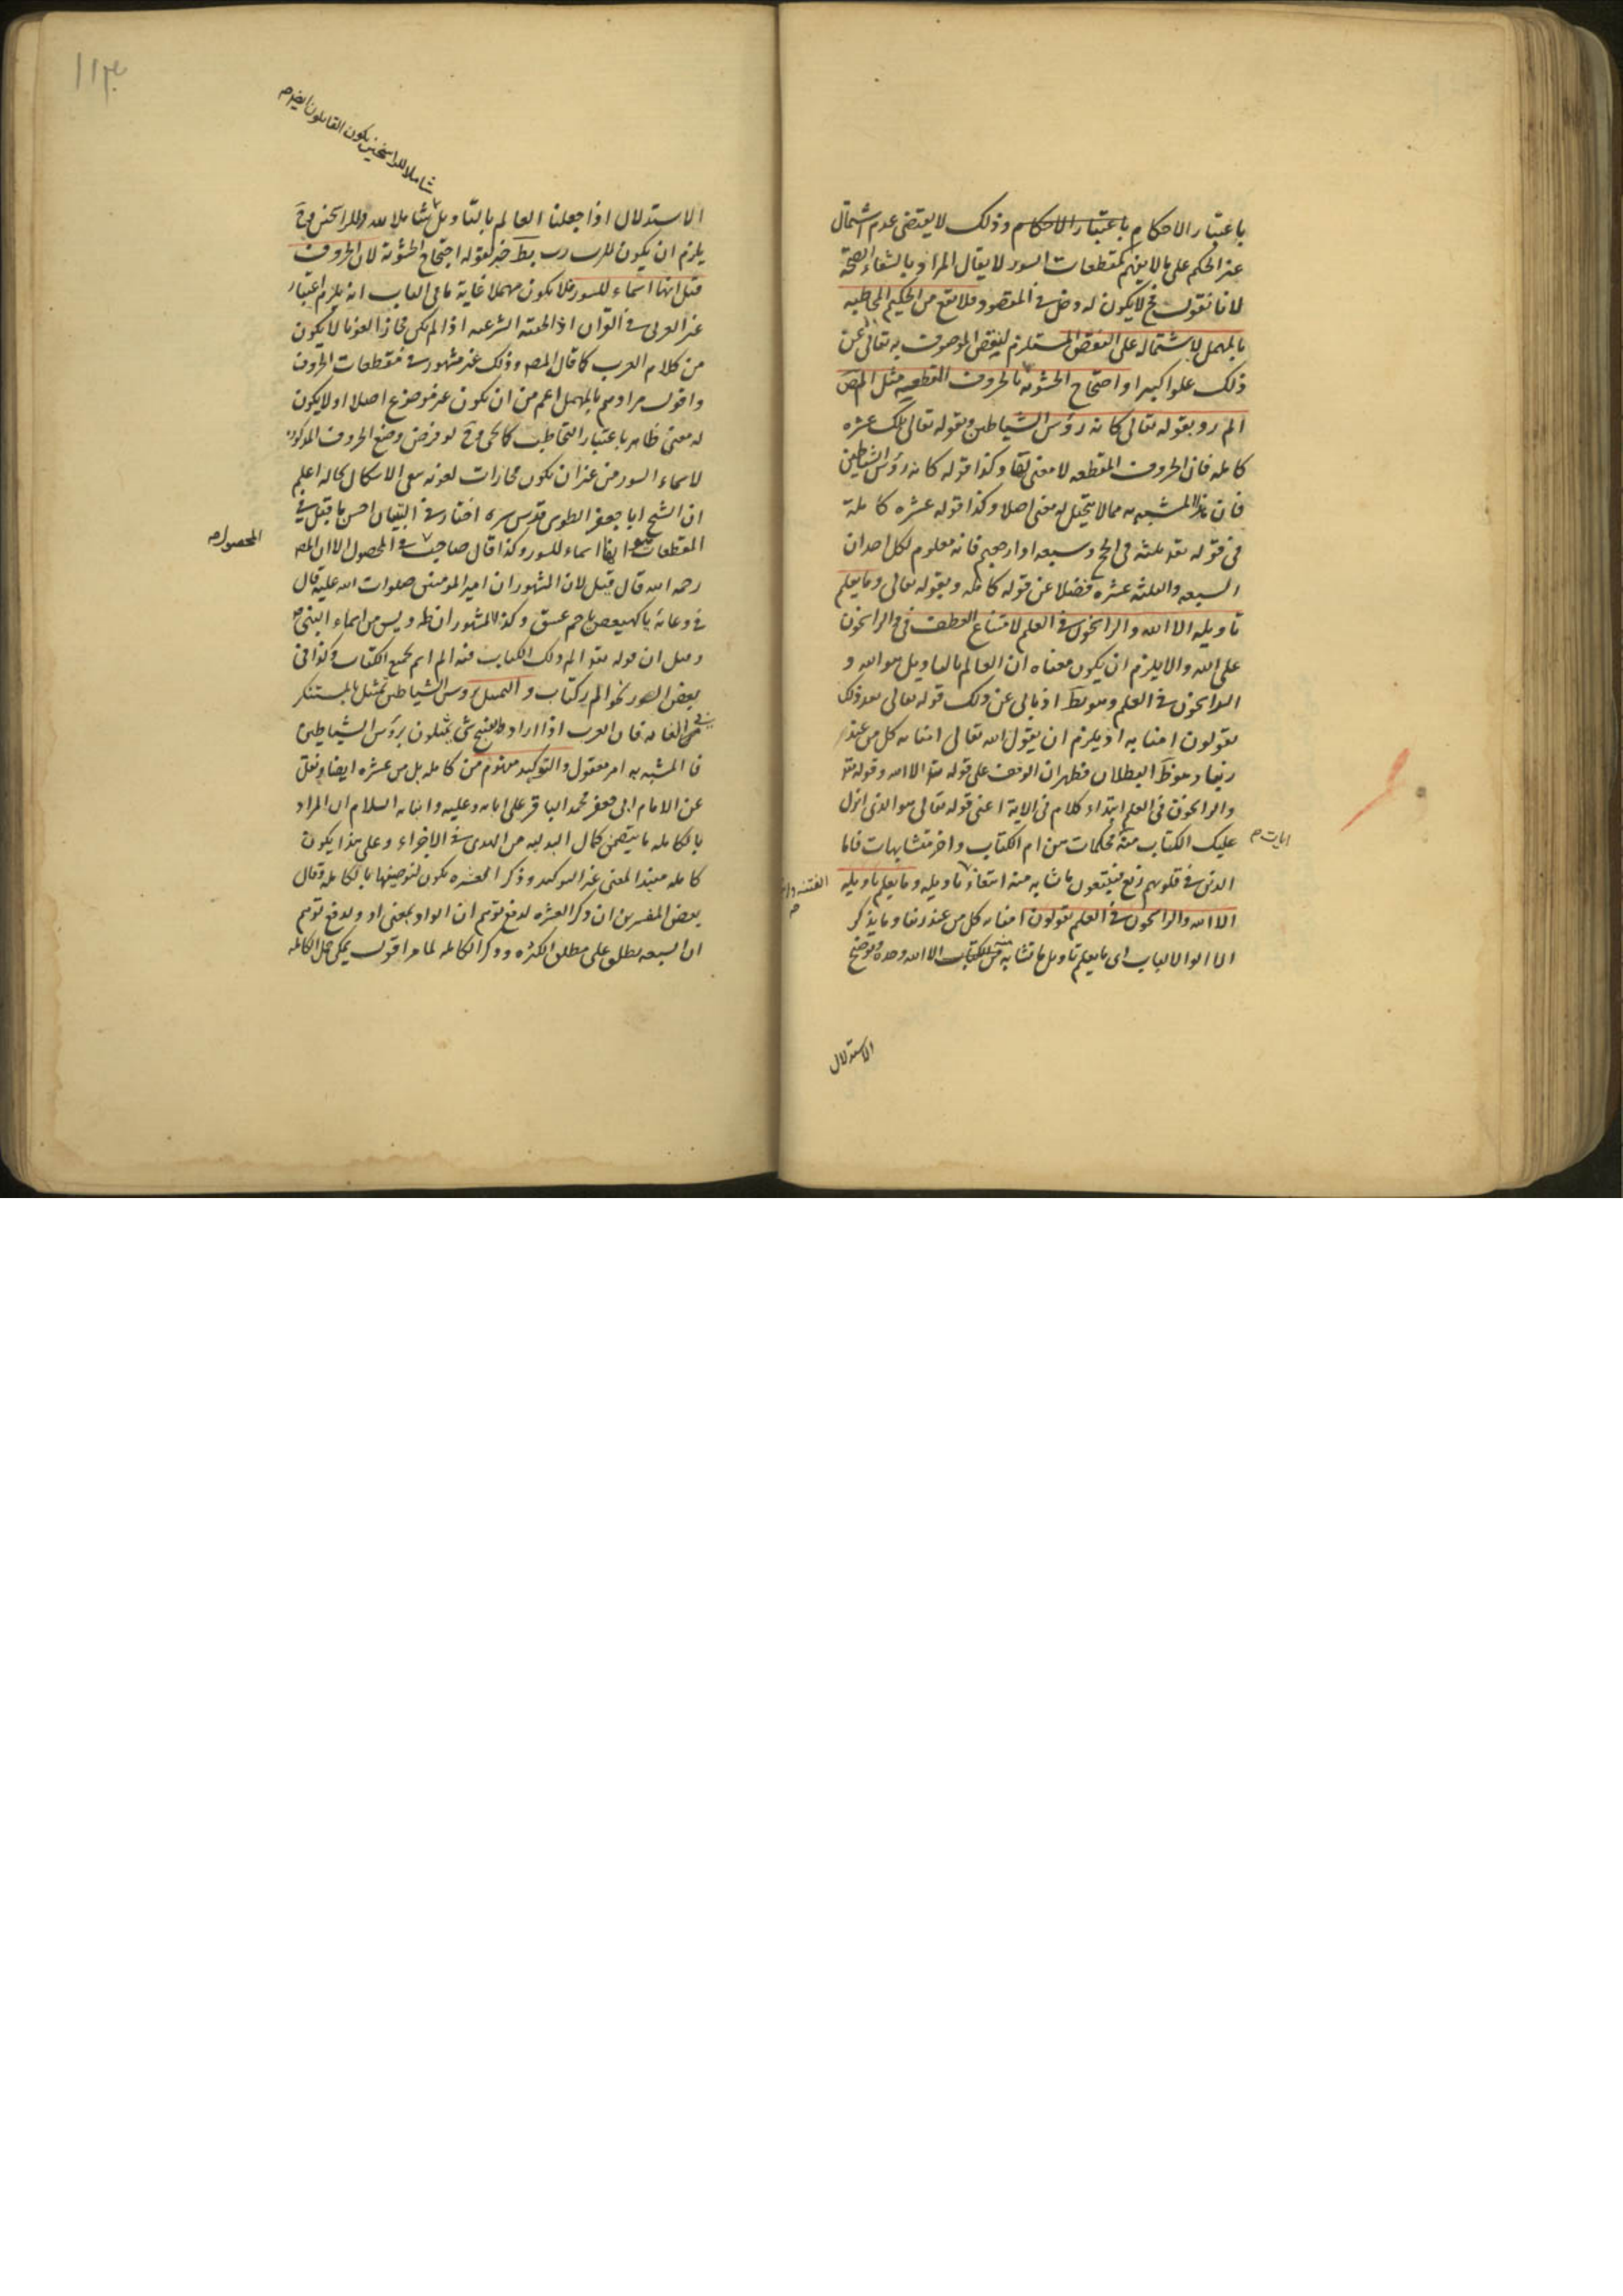 باعتبار الاحكام باعتبار الاحكام وذلك لا يقتضى عدم اشتمال
غير الحكم على ما لا يفهم كمقطعات السور لا يقال المراد بالشفاء الصحة
لانا نقول ح لا يكون له دخل فى المقصود فلا يقع من الحكيم المخاطبه
بالمهمل لاشتماله على النقص المستلزم لنقص الموصوف به تعالى عن
ذلك علوا كبيرا واحتجاج الحشويه بالحروف المقطعه مثل المص
الم رو بقوله تعالى كانه رؤس الشياطين وبقوله تعالى تلك عشره
كامله فان الحروف المقطعه لا معنى لها وكذا قوله كانه رؤس الشياطين
فان المشبه به مما لا يتخيل له معنى اصلا وكذا قوله عشره كاملة
فى قوله تعد ثلثه فى الحج وسبعه اذا رجعتم فانه معلوم لكل احد ان
السبعه والثلثه عشره فضلا عن قوله كامله وبقوله تعالى وما يعلم
تاويله الا الله والراسخون فى العلم لامتناع العطف فى والراسخون
على الله والا يلزم ان يكون معناه ان العالم بالتاويل هو الله و
الراسخون فى العلم وهو بط اذ يابى عن ذلك قوله تعالى بعد ذلك
يقولون امنا به اذ يلزم ان يقول الله تعالى امنا به كل من عند
ربنا وهو ظ البطلان فظهر ان الوقف على قوله تعد الا الله وقوله تعد
والراسخون فى العلم ابتداء كلام فى الاية اعنى قوله تعالى هو الذى انزل
عليك الكتاب منه محكمات هن ام الكتاب واخر متشابهات فاما
ايات
الذين فى قلوبهم زيغ فيتبعون ما تشابه منه ابتغاء تاويله وما يعلم تاويله
الفتنه وا
الا الله والراسخون فى العلم يقولون امنا به كل من عند ربنا وما يذكر
الا اولوا الالباب اى ما يعلم تاويل ما تشابه من الكتاب الا الله وحده وتوضيح
الاستدلال
١١٣
شاملا للراسخين يكون القايلون ايضا
الاستدلال اذا جعلنا العالم بالتاويل شاملا لله وللراسخين فى ح
يلزم ان يكون للرب رب بط خبر لقوله احتجاج الحشويه لان الحروف
قيل انها اسماء للسور فلا يكون مهملا غاية ما فى الباب انه يلزم اعتبار
غير العربى فى القران اذ الحقيقه الشرعيه اذا لم يكن مجازا لغويا لا يكون
من كلام العرب كما قال المص وذلك غير مشهور فى مقطعات الحروف
واقول مرادهم بالمهمل اعم من ان يكون غير موضوع اصلا او لا يكون
له معنى ظاهر باعتبار التخاطب كالحى وح لو فرض وضع الحروف المذكوره
لاسماء السور من غير ان يكون مجازات لغويه بقى الاشكال بحاله اعلم
ان الشيخ ابا جعفر الطوسى قدس سره اختار فى التبيان احسن ما قيل فى
المقطعات انها اسماء للسور وكذا قال صاحب فى المحصول الا ان المص
المحصول
رحمه الله قال قيل لان المشهور ان امير المؤمنين صلوات الله عليه قال
فى دعائه يا كهيعص يا حم عسق وكذا المشهور ان طه ويس من اسماء النبى
وقيل ان قوله تعد الم ذلك الكتاب فيه الم اسم لجميع الكتاب وكذا فى
بعض السور نحو الم كتاب و التمثيل برؤس الشياطين تمثيل بالمستنكر
فى الغايه فان العرب اذا ارادوا تقبيح شئ يمثلون برؤس الشياطين
فالمشبه به امر معقول والتوكيد مفهوم من كامله بل من عشره ايضا ونقل
عن الامام ابى جعفر محمد الباقر على ابايه وعليه وابنايه السلام ان المراد
بالكامله ما يتضمن كمال البدليه من الهدى فى الاجزاء وعلى هذا يكون
كامله مفيدا لمعنى غير التوكيد وذكر العشره يكون لتوصيفها بالكامله وقال
بعض المفسرين ان ذكر العشره لدفع توهم ان الواو بمعنى او ولدفع توهم
ان السبعه يطلق على مطلق الكثره وذكر الكامله لما مر اقول يمكن حمل الكامله